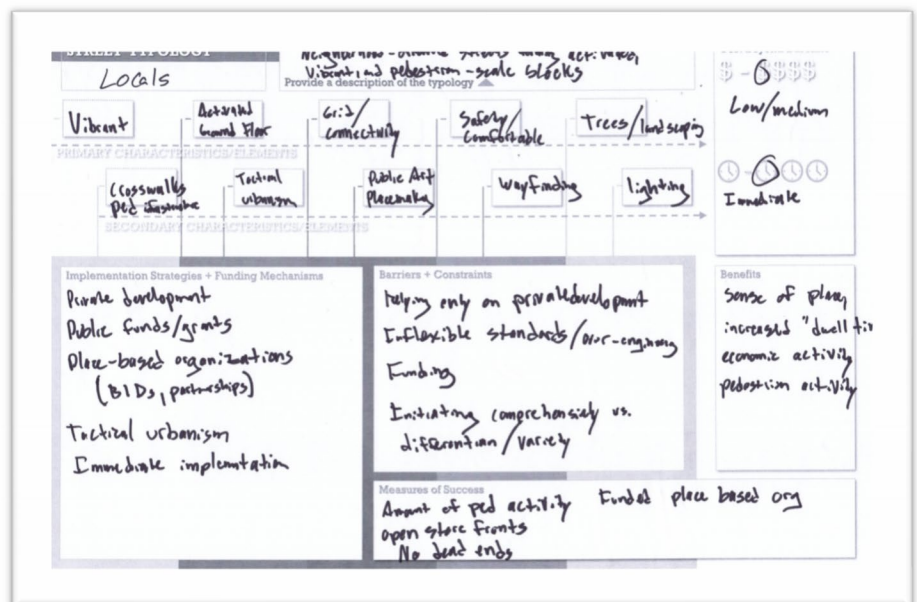 STREET TYPOLOGY
Locals
Vibrant, and pedestrian-scale blocks
Provide a description of the typology
$ - $$$$
Low/medium
Immediate
Vibrant
Activated
Ground Floor
Grid/
connectivity
Safety/
Comfortable
Trees/landscaping
PRIMARY CHARACTERISTICS/ELEMENTS
Crosswalks
Ped
Tactical
urbanism
Public Art
Placemaking
Wayfinding
lighting
SECONDARY CHARACTERISTICS/ELEMENTS
Implementation Strategies + Funding Mechanisms
Private development
Public funds/grants
Place-based organizations
(BIDs, partnerships)
Tactical urbanism
Immediate implemntation
Barriers + Constraints
relying only on private development
Inflexible standards/over-enginering
Funding
Initiating comprehensively vs.
/variety
Benefits
sense of place,
increased "dwell tim
economic activity
pedestrian activity
Measures of Success
Amount of ped activity Funded place based org
open store fronts
No dead ends